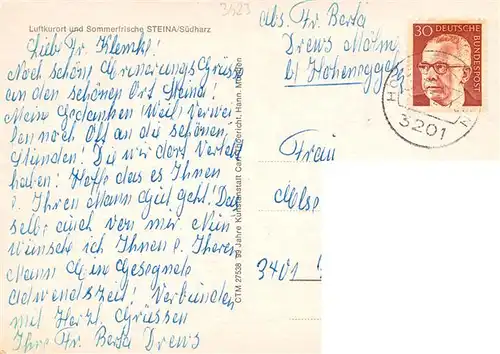 3423
Luftkurort und Sommerfrische STEINA/Südharz
Lieb Fr. Klemke!
Noch schöne Erinerungs Grüsse
an den schönen Ort Steina!
Meine Gedanken Weih Verwei
len noch Oft an die schönen,
Stunden! Die wir dort Verlebt
haben! Hoffe das es Ihnen
u. Ihren Mann Gut geht! Das
selbe auch von mir. Nun
wünsche ich Ihnen u. Iheren
Mann Ein Gesegnete
Adwendtszeit! Verbunden
mit Herzl. Grüssen
Ihre Fr. Berta Drews
CTM 27538 99 Jahre Kunstanstalt Carl Hann. Münden
Abs. Fr. Berta
Drews
b/ Hoheneggels
30 DEUTSCHE BUNDESPOST
3201
Frau
Else
3401